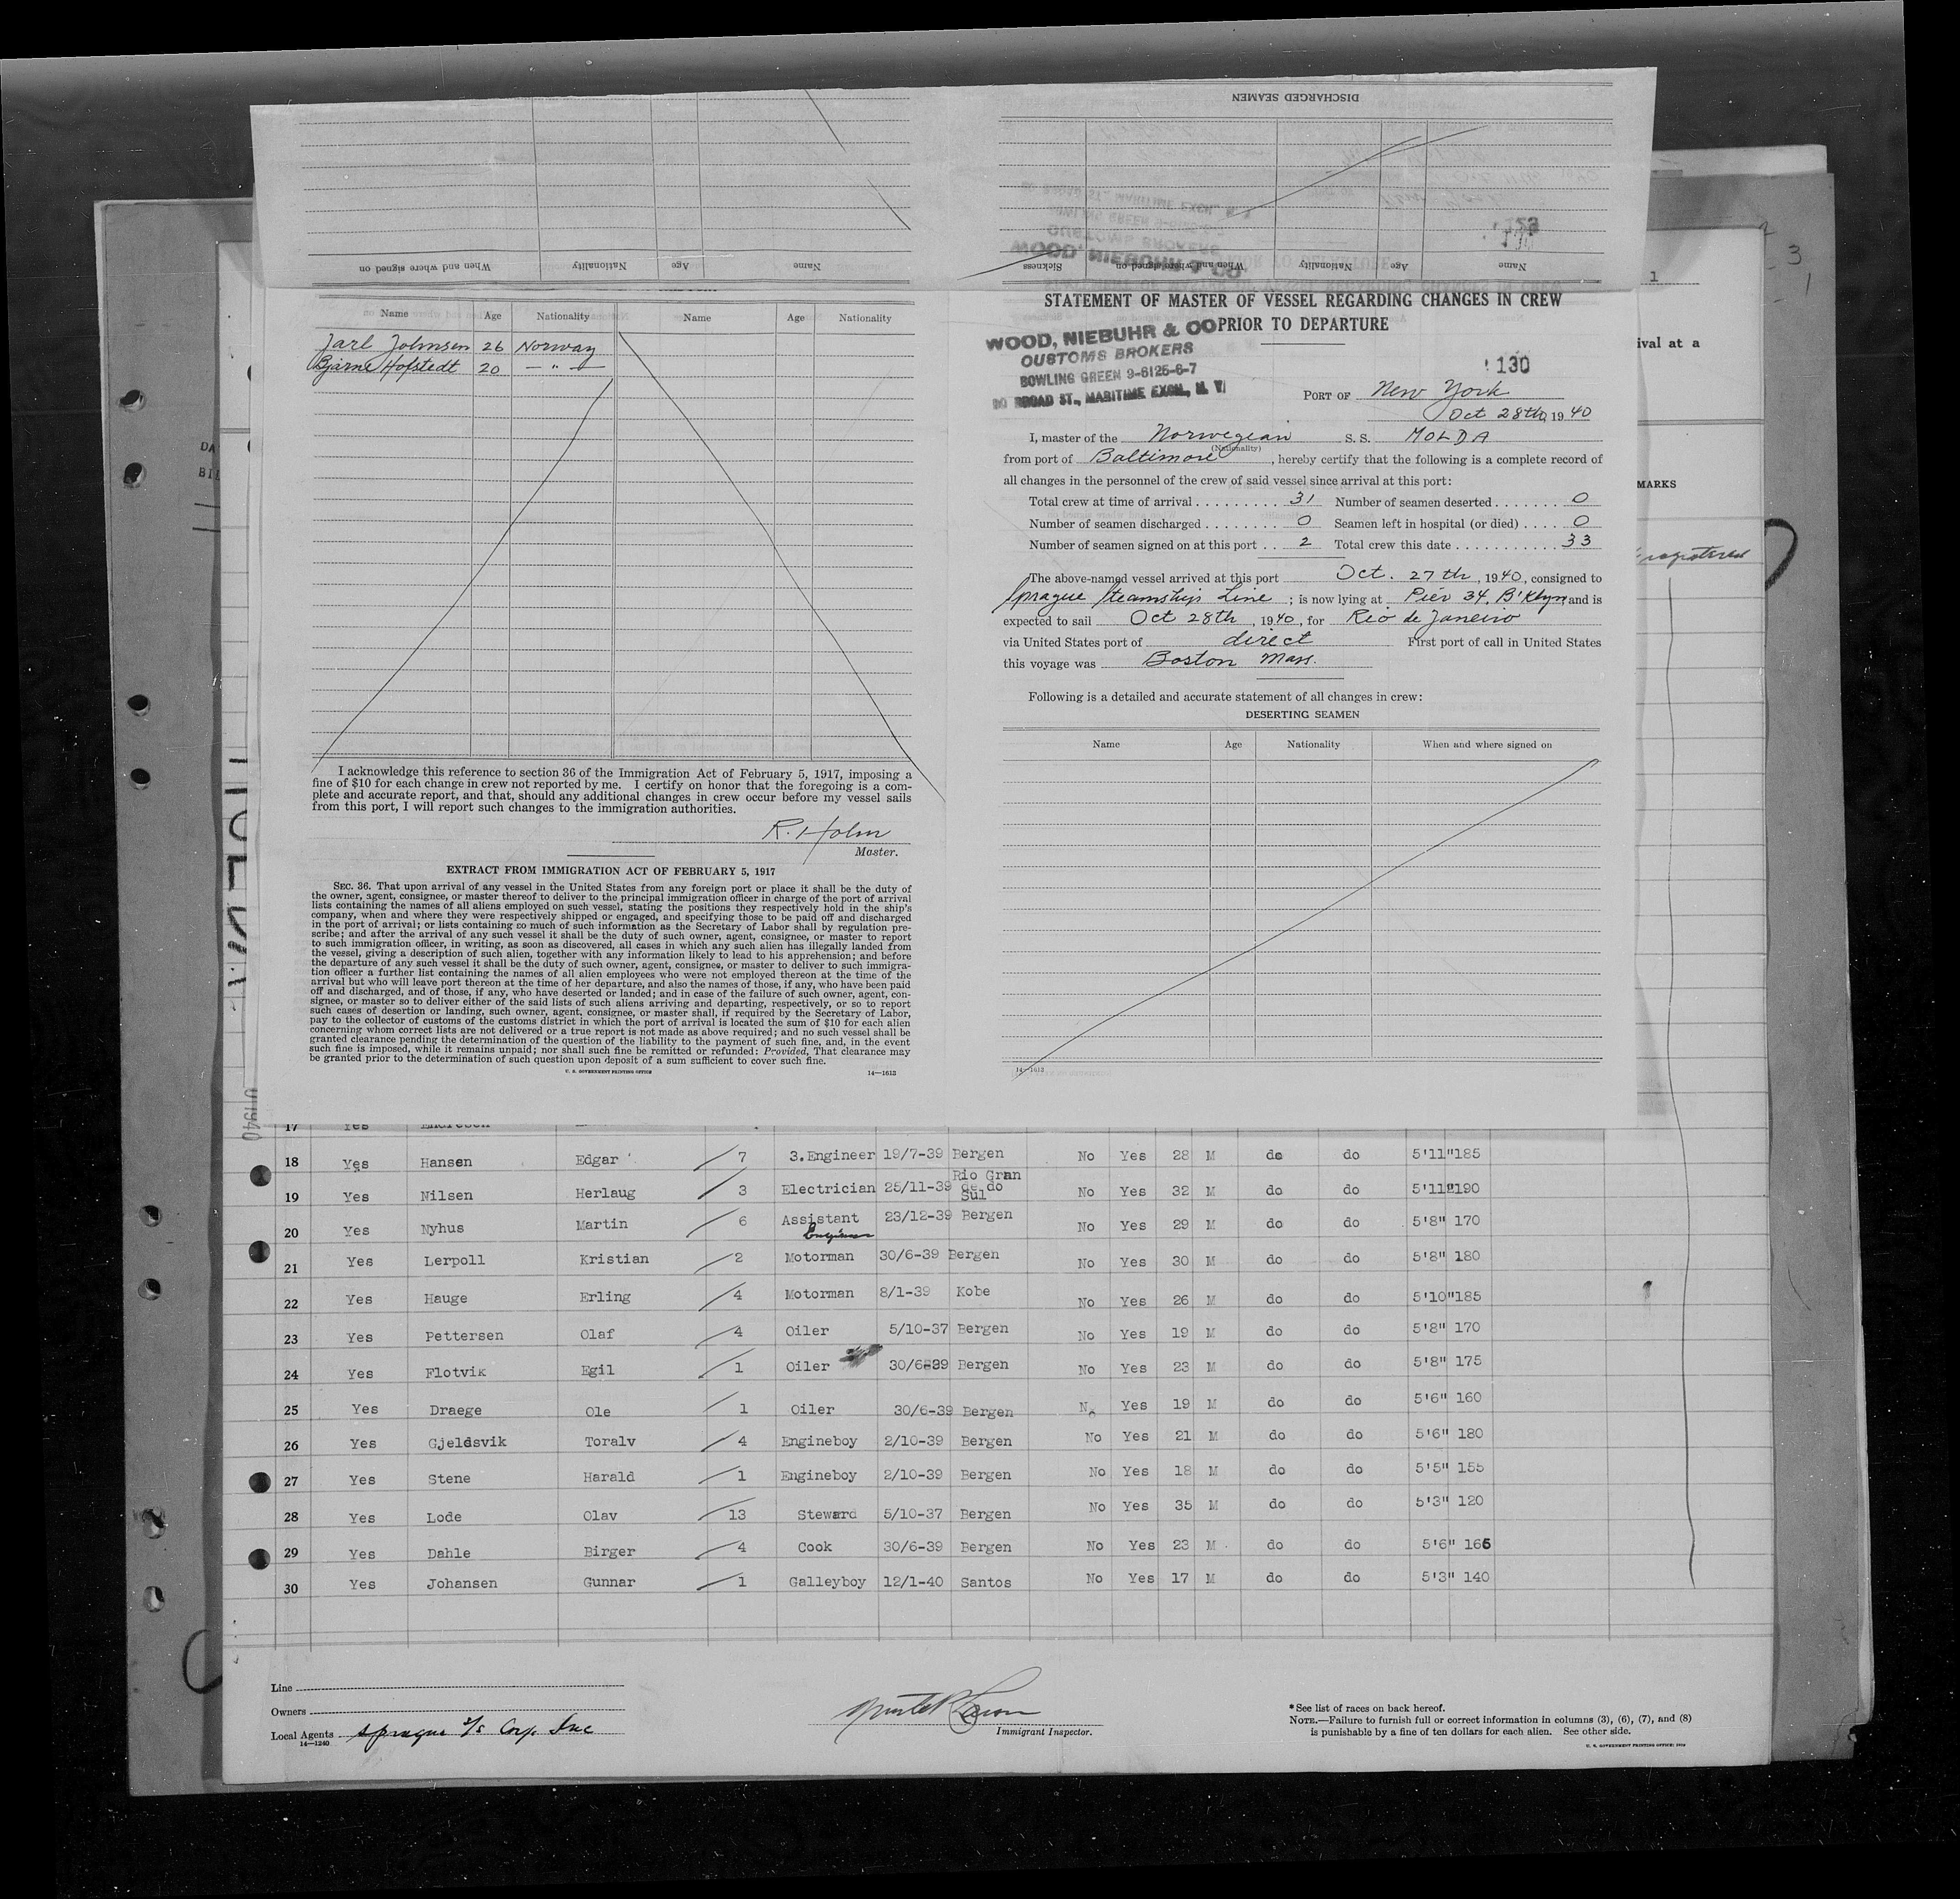 DISCHARGED SEAMEN
When and where signed on Nationality Age Name
Sickness When and where signed on Nationality Age Name
Name Age Nationality Name Age Nationality
Jarl Johnsen 26 Norway
Bjarne Hofstedt 20 — " —
I acknowledge this reference to section 36 of the Immigration Act of February 5, 1917, imposing a
fine of $10 for each change in crew not reported by me. I certify on honor that the foregoing is a com-
plete and accurate report, and that, should any additional changes in crew occur before my vessel sails
from this port, I will report such changes to the immigration authorities.
R. Holm
Master.
EXTRACT FROM IMMIGRATION ACT OF FEBRUARY 5, 1917
SEC. 36. That upon arrival of any vessel in the United States from any foreign port or place it shall be the duty of
the owner, agent, consignee, or master thereof to deliver to the principal immigration officer in charge of the port of arrival
lists containing the names of all aliens employed on such vessel, stating the positions they respectively hold in the ship's
company, when and where they were respectively shipped or engaged, and specifying those to be paid off and discharged
in the port of arrival; or lists containing so much of such information as the Secretary of Labor shall by regulation pre-
scribe; and after the arrival of any such vessel it shall be the duty of such owner, agent, consignee, or master to report
to such immigration officer, in writing, as soon as discovered, all cases in which any such alien has illegally landed from
the vessel, giving a description of such alien, together with any information likely to lead to his apprehension; and before
the departure of any such vessel it shall be the duty of such owner, agent, consignee, or master to deliver to such immigra-
tion officer a further list containing the names of all alien employees who were not employed thereon at the time of the
arrival but who will leave port thereon at the time of her departure, and also the names of those, if any, who have been paid
off and discharged, and of those, if any, who have deserted or landed; and in case of the failure of such owner, agent, con-
signee, or master so to deliver either of the said lists of such aliens arriving and departing, respectively, or so to report
such cases of desertion or landing, such owner, agent, consignee, or master shall, if required by the Secretary of Labor,
pay to the collector of customs of the customs district in which the port of arrival is located the sum of $10 for each alien
concerning whom correct lists are not delivered or a true report is not made as above required; and no such vessel shall be
granted clearance pending the determination of the question of the liability to the payment of such fine, and, in the event
such fine is imposed, while it remains unpaid; nor shall such fine be remitted or refunded: Provided, That clearance may
be granted prior to the determination of such question upon deposit of a sum sufficient to cover such fine.
U. S. GOVERNMENT PRINTING OFFICE 14—1613
STATEMENT OF MASTER OF VESSEL REGARDING CHANGES IN CREW
PRIOR TO DEPARTURE
WOOD, NIEBUHR & CO
CUSTOMS BROKERS
BOWLING GREEN 9-6125-6-7
80 BROAD ST., MARITIME EXCH., N. Y.
130
PORT OF New York
Oct 28th, 1940
I, master of the Norwegian S. S. MOLDA
(Nationality)
from port of Baltimore, hereby certify that the following is a complete record of
all changes in the personnel of the crew of said vessel since arrival at this port:
Total crew at time of arrival . . . . . . . . . 31 Number of seamen deserted . . . . . . 0
Number of seamen discharged . . . . . . . 0 Seamen left in hospital (or died) . . . . 0
Number of seamen signed on at this port . . 2 Total crew this date . . . . . . . . . . . 33
The above-named vessel arrived at this port Oct. 27th, 1940, consigned to
Sprague Steamship Line ; is now lying at Pier 34, B'klyn, and is
expected to sail Oct 28th, 1940, for Rio de Janeiro
via United States port of direct First port of call in United States
this voyage was Boston Mass.
Following is a detailed and accurate statement of all changes in crew:
DESERTING SEAMEN
Name Age Nationality When and where signed on
14—1613
DA
BIL
1
3
1
ival at a
MARKS
registered
U 1940
17 Yes Endresen
18 Yes Hansen Edgar 7 3.Engineer 19/7-39 Bergen No Yes 28 M do do 5'11" 185
19 Yes Nilsen Herlaug 3 Electrician 25/11-39 Rio Gran de do Sul No Yes 32 M do do 5'11" 190
20 Yes Nyhus Martin 6 Assistant Engineer 23/12-39 Bergen No Yes 29 M do do 5'8" 170
21 Yes Lerpoll Kristian 2 Motorman 30/6-39 Bergen No Yes 30 M do do 5'8" 180
22 Yes Hauge Erling 4 Motorman 8/1-39 Kobe No Yes 26 M do do 5'10" 185
23 Yes Pettersen Olaf 4 Oiler 5/10-37 Bergen No Yes 19 M do do 5'8" 170
24 Yes Flotvik Egil 1 Oiler 30/6-39 Bergen No Yes 23 M do do 5'8" 175
25 Yes Draege Ole 1 Oiler 30/6-39 Bergen No Yes 19 M do do 5'6" 160
26 Yes Gjeldsvik Toralv 4 Engineboy 2/10-39 Bergen No Yes 21 M do do 5'6" 180
27 Yes Stene Harald 1 Engineboy 2/10-39 Bergen No Yes 18 M do do 5'5" 155
28 Yes Lode Olav 13 Steward 5/10-37 Bergen No Yes 35 M do do 5'3" 120
29 Yes Dahle Birger 4 Cook 30/6-39 Bergen No Yes 23 M do do 5'6" 165
30 Yes Johansen Gunnar 1 Galleyboy 12/1-40 Santos No Yes 17 M do do 5'3" 140
Line
Owners
Local Agents Sprague S/S Corp. Inc
14—1240
Immigrant Inspector.
*See list of races on back hereof.
NOTE.—Failure to furnish full or correct information in columns (3), (6), (7), and (8)
is punishable by a fine of ten dollars for each alien. See other side.